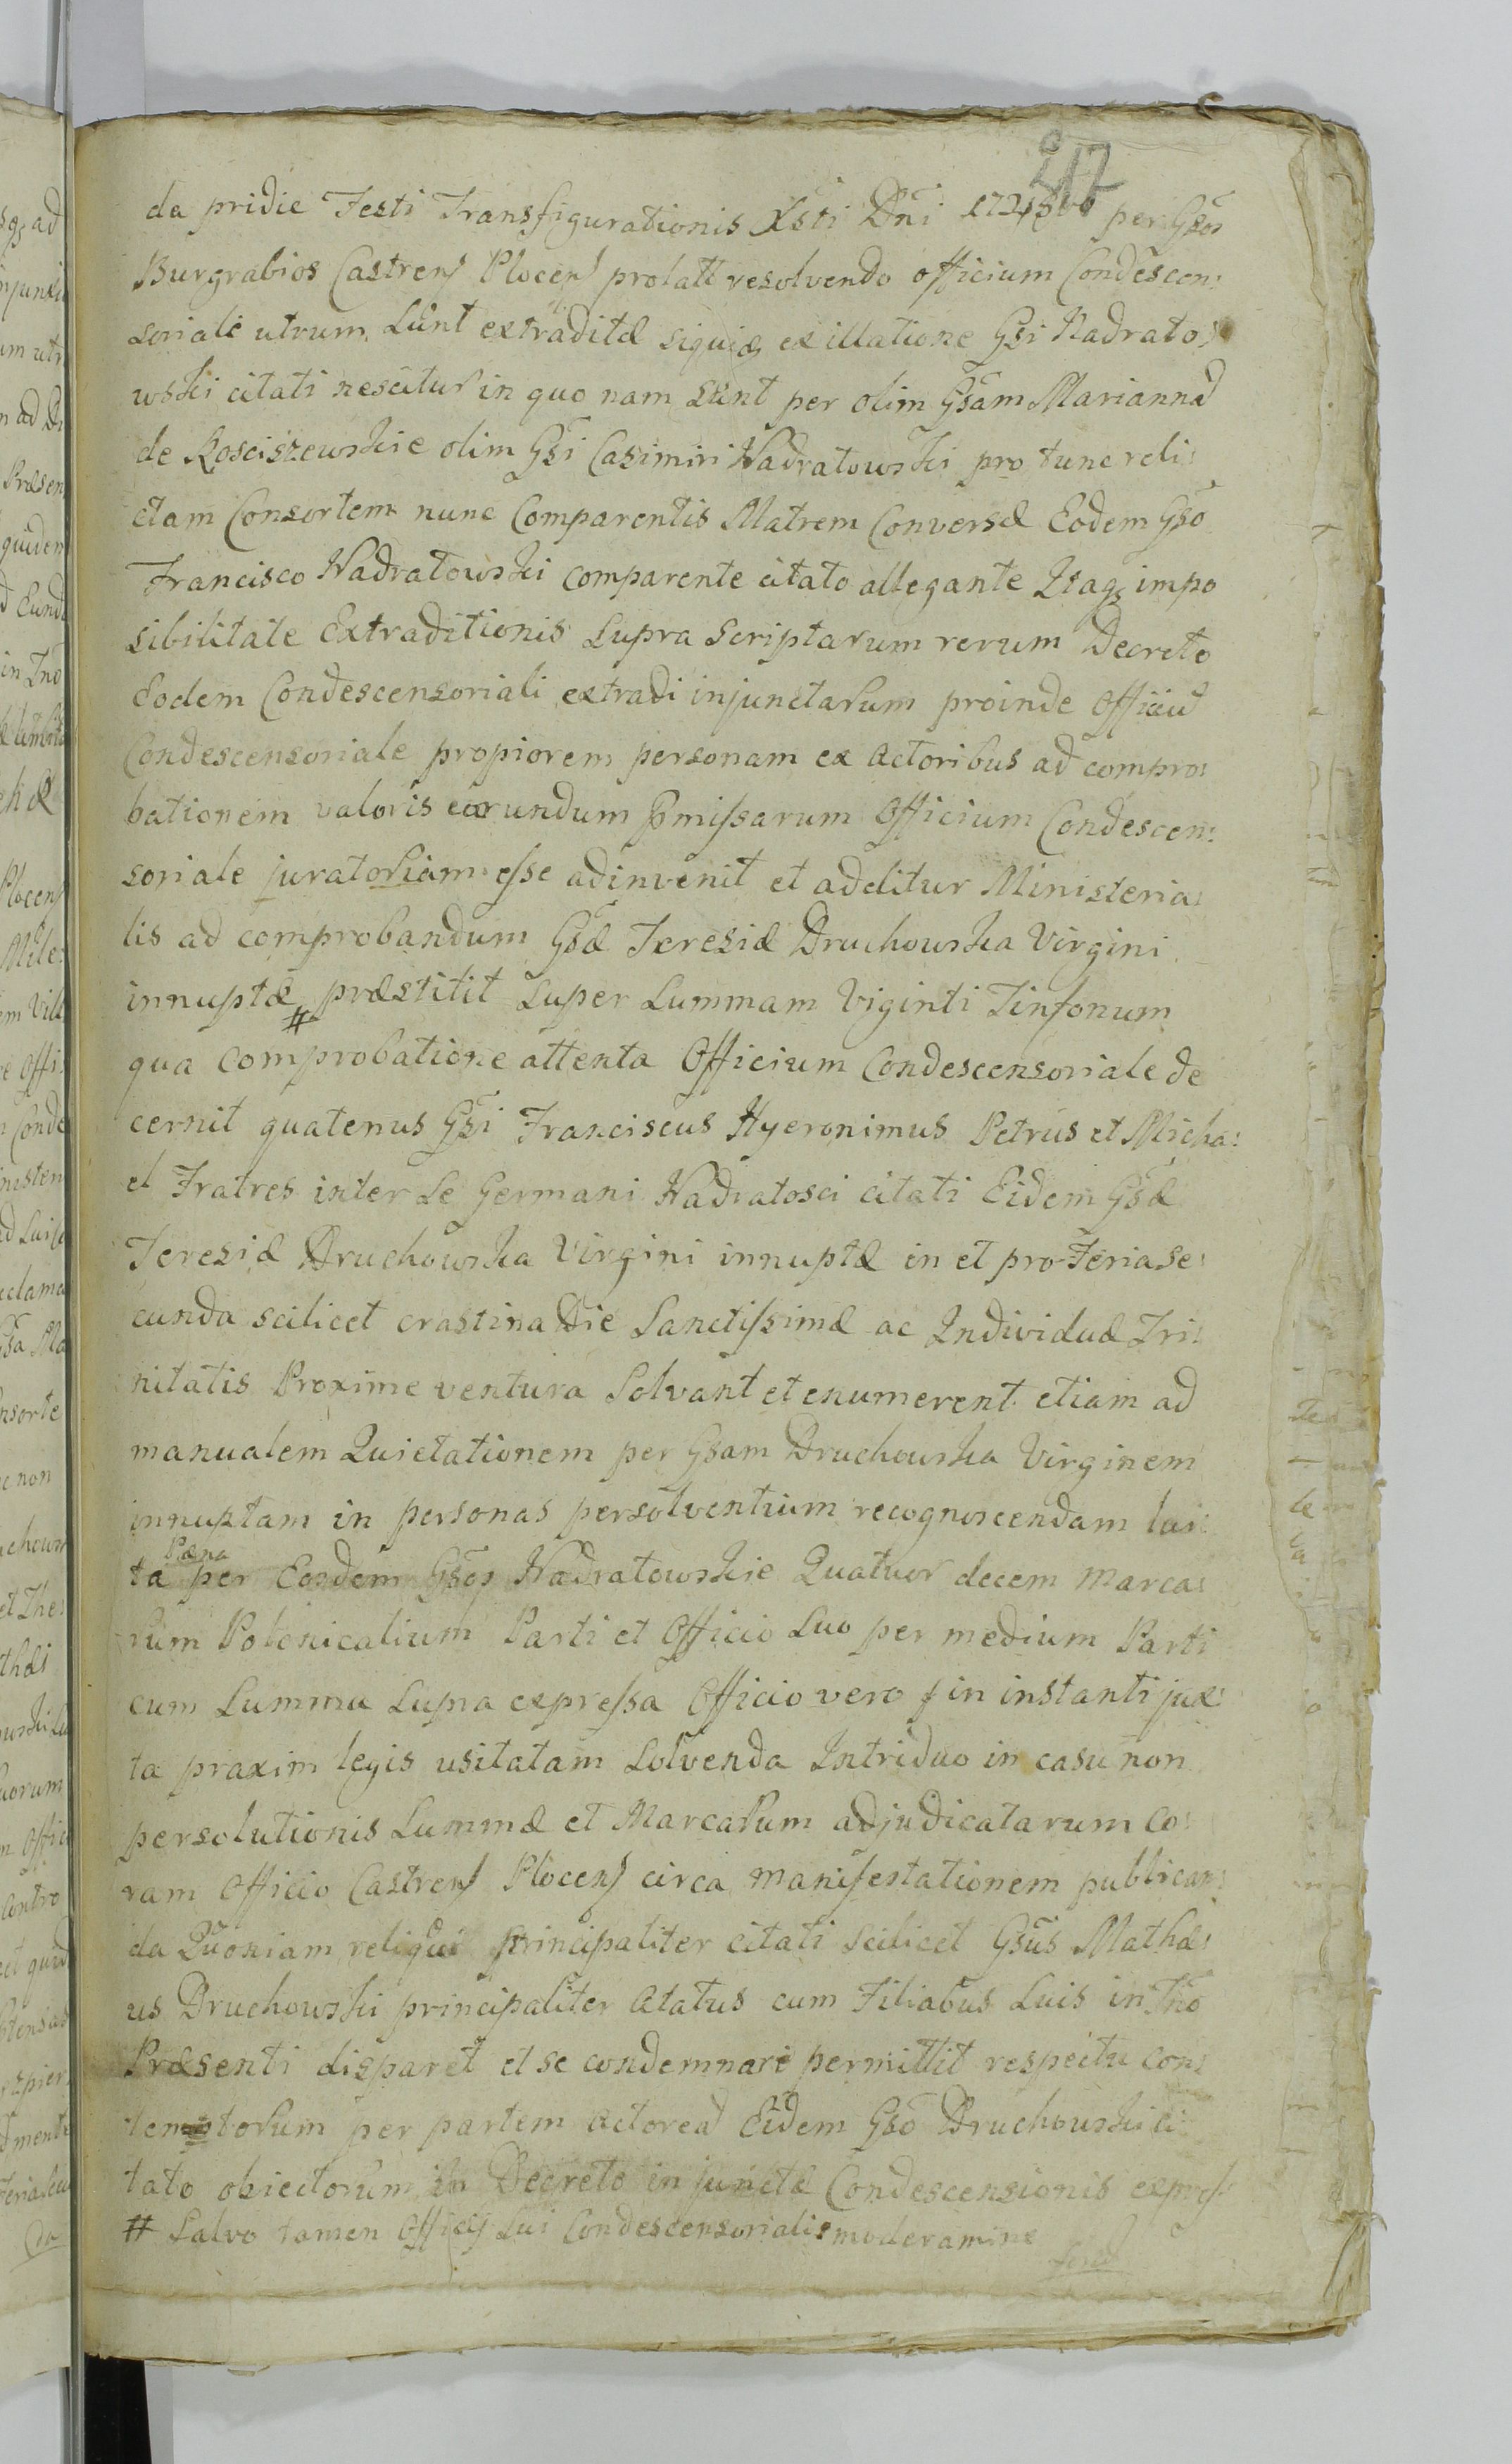 217
da pridie Festi Transfigurationis Xsti Dni per Gsos
Burgrabios Castren Plocen prolati resolvendo officium Condescen:
soriale utrum Sunt extraditæ siquid ex illatione Gsi Nadrato:
wski citati nescitur in quo nam Sunt per olim Gsam Mariannã
de Rosciszewskie olim Gsi Casimiri Nadratowski pro tunc reli:
ctam Consortem nunc Comparentis Matrem Conversæ Eodem Gso
Francisco Nadratowski comparente citato allegante Itaq impo
sibilitate Extraditionis Supra Scriptarum rerum Decreto
Eodem Condescensoriali extradi injunctarum proinde Officiũ
Condescensoriale propiorem personam ex Actoribus ad compro:
bationem valoris earundum Pmissarum Officium Condescen:
soriale juratoriam esse adinvenit et additur Ministeria:
lis ad comprobandum Gsæ Teresiæ Druchowska Virgini
innuptæ # præstitit Super Summam Viginti Tinfonum
qua Comprobatione attenta Officium Condescensoriale de
cernit quatenus Gsi Franciscus Hyeronimus Petrus et Micha:
el Fratres inter Se Germani Nadratosci citati Eidem Gsæ
Teresiæ Druchowska Virgini innuptæ in et pro Feria Se:
cunda scilicet crastina Die Sanctissimæ ac Individuæ Tri:
nitatis Proxime ventura Solvant et enumerent etiam ad
manualem Quietationem per Gsam Druchowska Virginem
innuptam in personas persolventium recognoscendam lui:
Pæna
ta per Eosdem Gsos Nadratowskie Quatuor decem Marca:
rum Polonicalium Parti et Officio Suo per medium Parti
cum Summa Supra expressa Officio vero in instanti jux:
ta praxim legis usitatam Solvenda Intriduo in casu non
persolutionis Summæ et Marcarum adjudicatarum Co:
ram Officio Castren Plocen circa manifestationem publican:
da Quoniam reliqui principaliter citati scilicet Gsus Mathæ:
us Druchowski principaliter citatus cum Filiabus Suis in Tno
Præsenti disparet et se condemnari permittit respectu con:
temptorum per partem Actoreã Eidem Gso Druchowski ci:
tato obiectorum in Decreto injunctæ Condescensionis express
# Salvo tamen Officij Sui Condescensorialis moderamine